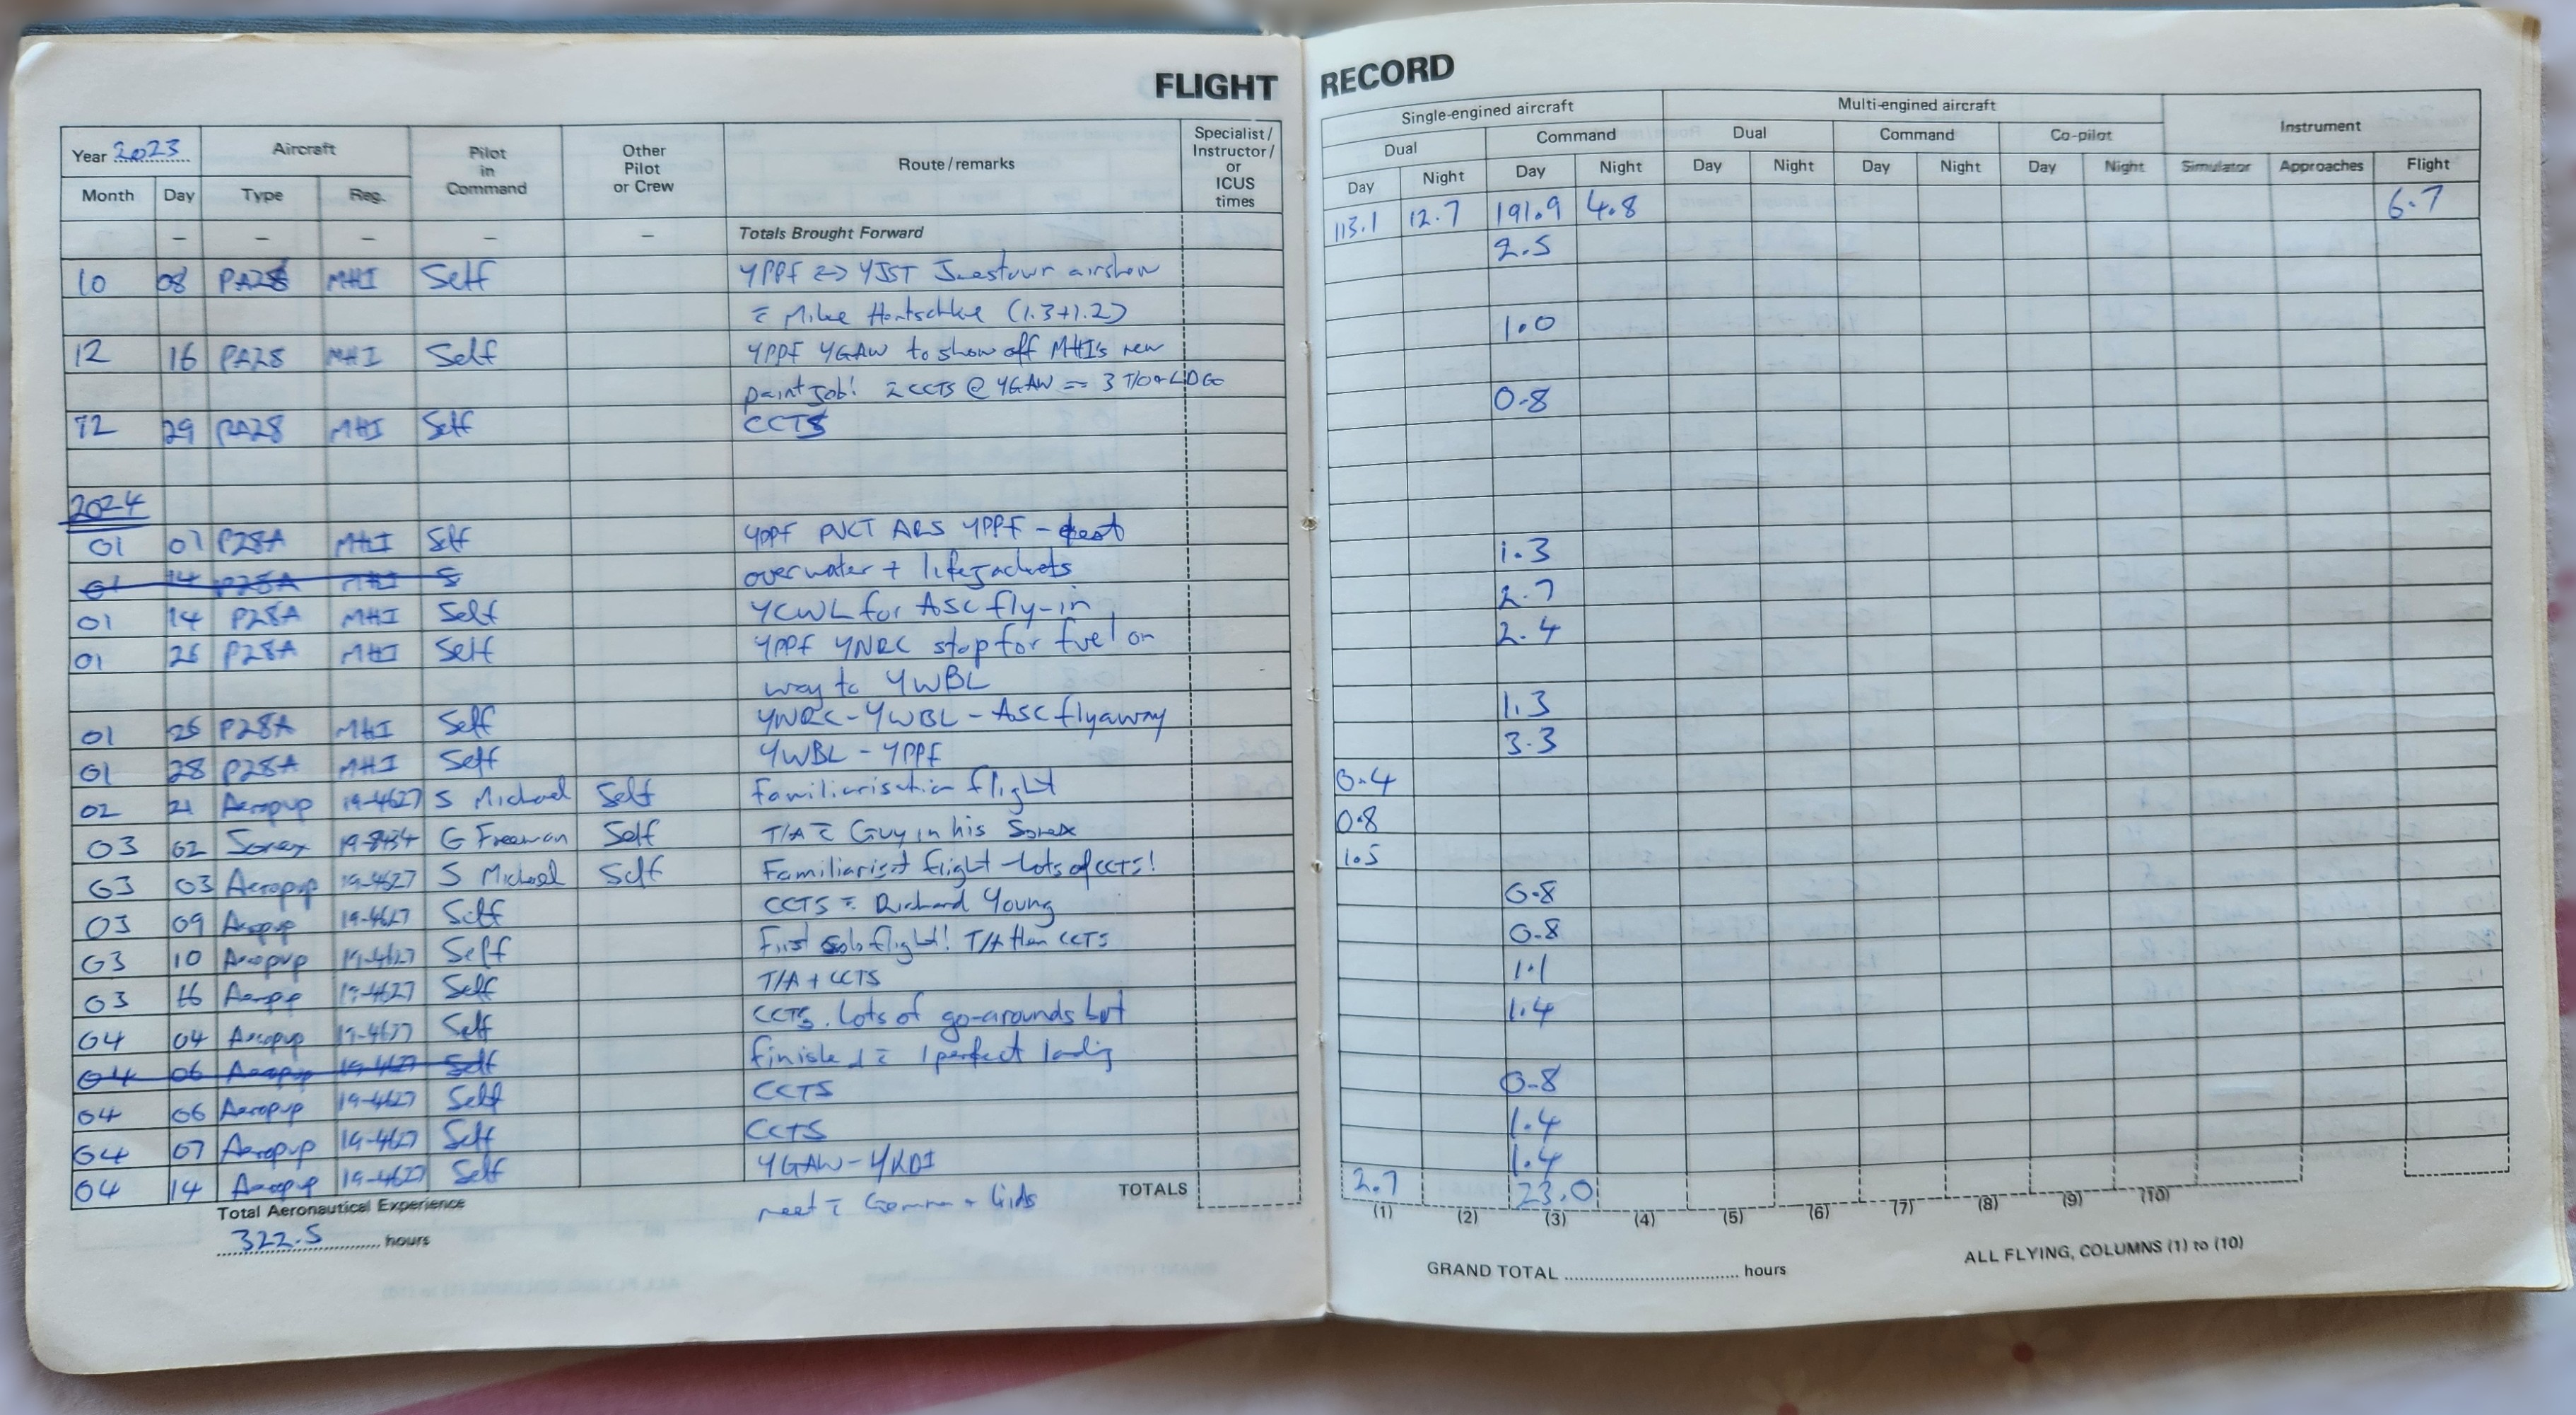 FLIGHT RECORD
Year 2023 Aircraft Pilot in Command Other Pilot or Crew Route/remarks Specialist/ Instructor/ or ICUS times
Month Day Type Reg.
Single-engined aircraft Multi-engined aircraft Instrument
Dual Command Dual Command Co-pilot
Day Night Day Night Day Night Day Night Day Night Simulator Approaches Flight
– – – – – Totals Brought Forward 113.1 12.7 191.9 4.8 6.7
10 08 PA28 MHI Self YPPF <=> YJST Jamestown airshow 2.5
c Mike Hantschke (1.3+1.2)
12 16 PA28 MHI Self YPPF YGAW to show off MHI's new 1.0
paint job! 2 CCTS @ YGAW = 3 T/O + LDG
12 29 PA28 MHI Self CCTS 0.8
2024
01 07 P28A MHI Self YPPF PNCT ARS YPPF - test 1.3
01 14 P28A MHI S overwater + lifejackets
01 14 P28A MHI Self YCWL for ASC fly-in 2.7
01 26 P28A MHI Self YPPF YNRC stop for fuel on 2.4
way to YWBL
01 26 P28A MHI Self YNRC-YWBL-ASC flyaway 1.3
01 28 P28A MHI Self YWBL-YPPF 3.3
02 21 Aeropup 19-4627 S Michael Self Familiarisation flight 0.4
03 02 Sonex 19-8434 G Freeman Self T/A c Guy in his Sonex 0.8
03 03 Aeropup 19-4627 S Michael Self Familiaris'n flight - lots of CCTS! 1.5
03 09 Aeropup 19-4627 Self CCTS c Richard Young 0.8
03 10 Aeropup 19-4627 Self First solo flight! T/A then CCTS 0.8
03 16 Aeropup 19-4627 Self T/A + CCTS 1.1
04 04 Aeropup 19-4627 Self CCTS. Lots of go-arounds but 1.4
04 06 Aeropup 19-4627 Self finished c 1 perfect landing
04 06 Aeropup 19-4627 Self CCTS 0.8
04 07 Aeropup 19-4627 Self CCTS 1.4
04 14 Aeropup 19-4627 Self YGAW-YKDI 1.4
meet c + kids
TOTALS 2.7 23.0
(1) (2) (3) (4) (5) (6) (7) (8) (9) (10)
Total Aeronautical Experience
322.5 hours
GRAND TOTAL hours ALL FLYING, COLUMNS (1) to (10)